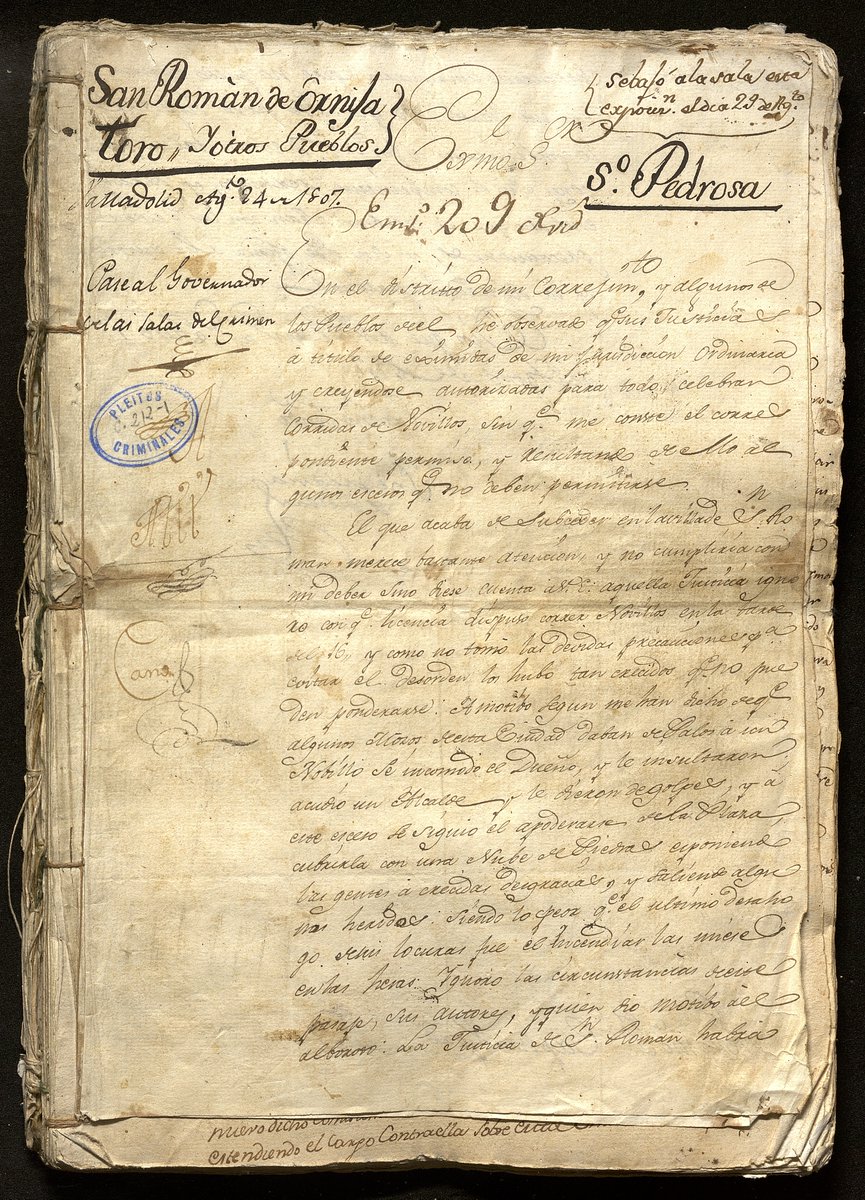 San Román de Ôrnisa
Toro,, Y ótros Pueblos
Exmo. S.
se bajó a la sala esta
el dia 29 de Ag.to
S.º Pedrosa
Valladolid Ag.to 24 de 1807.
209
Pase al Governador
de las salas del Crimen
PLEITOS
C. 212-1
CRIMINALES
En el distrito de mi Corregim.to y algunos de
los Pueblos de el, he observado q.e sus Justicias
á título de eximidas de mi jurisdicción ordinaria
y creyendose autorizadas para todo, celebran
Corridas de Novillos, sin q.e me conste el corres
pondiente permiso, y resultando de ello al
gunos escesos q.e no deben permitirse.
El que acaba de subceder en la villa de S.n Ro
man merece bastante atención, y no cumpliria con
mi deber sino diese cuenta á V.E. aquella Justicia igno
ro con q.e licencia dispuso correr Novillos en la tarde
del 16, y como no tomó las devidas precauciones p.a
evitar el desorden los hubo tan crecidos q.e no pue
den ponderarse: A motibo segun me han dicho de q.e
algunos Mozos de esta Ciudad daban de Palos á un
Nobillo se incomodó el Dueño, y le insultaron;
acudió un Alcalde y le dieron de golpes, y á
este esceso se siguió el apoderarse de la Plaza,
cubrirla con una Nube de Piedras esponiendo
las gentes á crecidas desgracias, y saliendo algu
nos heridos: siendo lo peor q.e el ultimo desaho
go de sus locuras fue el incendiar las mieses
en las heras: Ygnoro las circunstancias de este
pasaje, sus autores, y quien dio motibo á el
alboroto: La Justicia de S.n Román habrá
nuevo dicho
estendiendo el Cargo Contra ella sobre